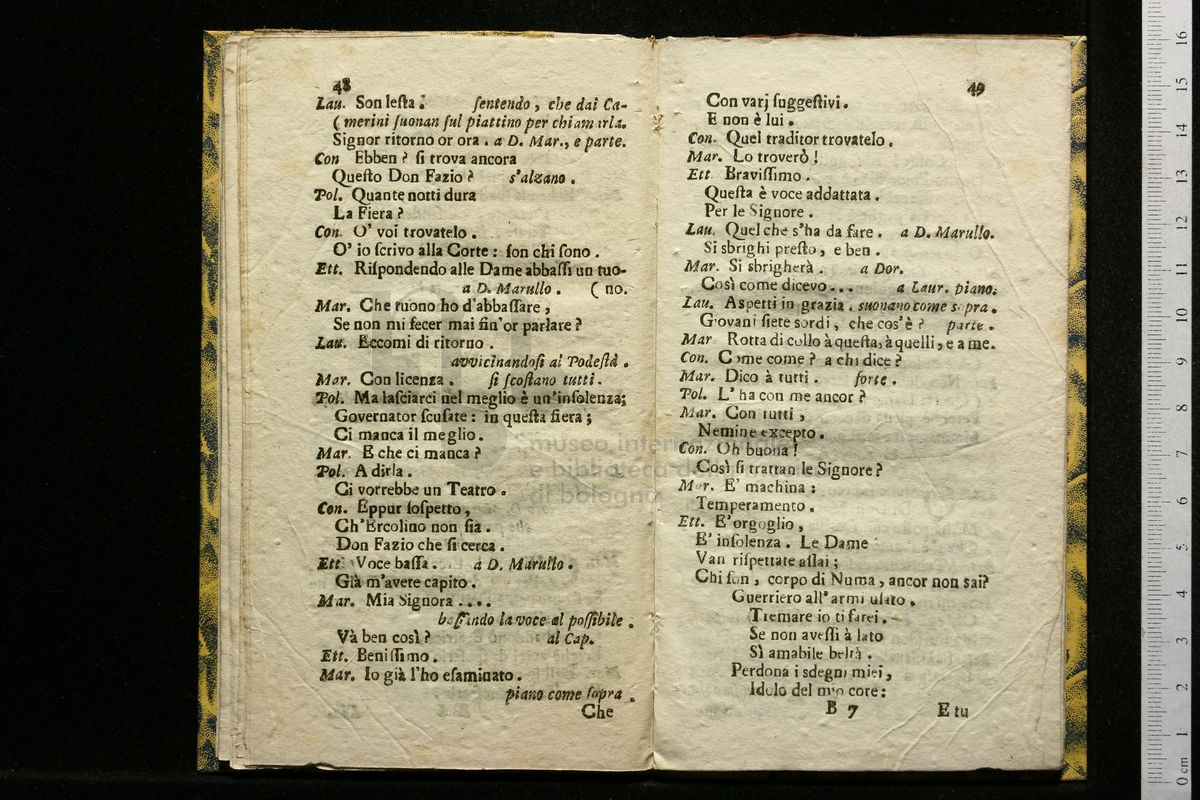 48
Lau. Son lesta. sentendo, che dai Ca-
( merini suonan sul piattino per chiamarla.
Signor ritorno or ora. a D. Mar., e parte.
Con Ebben? si trova ancora
Questo Don Fazio? s'alzano.
Pol. Quante notti dura
La Fiera?
Con. O' voi trovatelo.
O' io scrivo alla Corte: son chi sono.
Ett. Rispondendo alle Dame abbassi un tuo-
a D. Marullo. ( no.
Mar. Che tuono ho d'abbassare,
Se non mi fecer mai fin'or parlare?
Lau. Eccomi di ritorno.
avvicinandosi al Podestà.
Mar. Con licenza. si scostano tutti.
Pol. Ma lasciarci nel meglio è un'insolenza;
Governator scusate: in questa fiera;
Ci manca il meglio.
Mar. E che ci manca?
Pol. A dirla.
Ci vorrebbe un Teatro.
Con. Eppur sospetto,
Ch'Ercolino non sia.
Don Fazio che si cerca.
Ett. Voce bassa. a D. Marullo.
Già m'avete capito.
Mar. Mia Signora ....
bassando la voce al possibile.
Và ben così? al Cap.
Ett. Benissimo.
Mar. Io già l'ho esaminato.
piano come sopra.
Che
49
Con varj suggestivi.
E non è lui.
Con. Quel traditor trovatelo.
Mar. Lo troverò!
Ett. Bravissimo.
Questa è voce addattata.
Per le Signore.
Lau. Quel che s'ha da fare. a D. Marullo.
Si sbrighi presto, e ben.
Mar. Si sbrigherà. a Dor.
Così come dicevo... a Laur. piano.
Lau. Aspetti in grazia. suonano come sopra.
Giovani siete sordi, che cos'è? parte.
Mar Rotta di collo à questa, à quelli, e a me.
Con. Come come? a chi dice?
Mar. Dico à tutti. forte.
Pol. L' ha con me ancor?
Mar. Con tutti,
Nemine excepto.
Con. Oh buona!
Così si trattan le Signore?
Mar. E' machina:
Temperamento.
Ett. E' orgoglio,
E' insolenza. Le Dame
Van rispettate assai;
Chi son, corpo di Numa, ancor non sai?
Guerriero all' armi usato.
Tremare io ti farei.
Se non avessi à lato
Sì amabile beltà.
Perdona i sdegni miei,
Idolo del mio core:
B 7 E tu